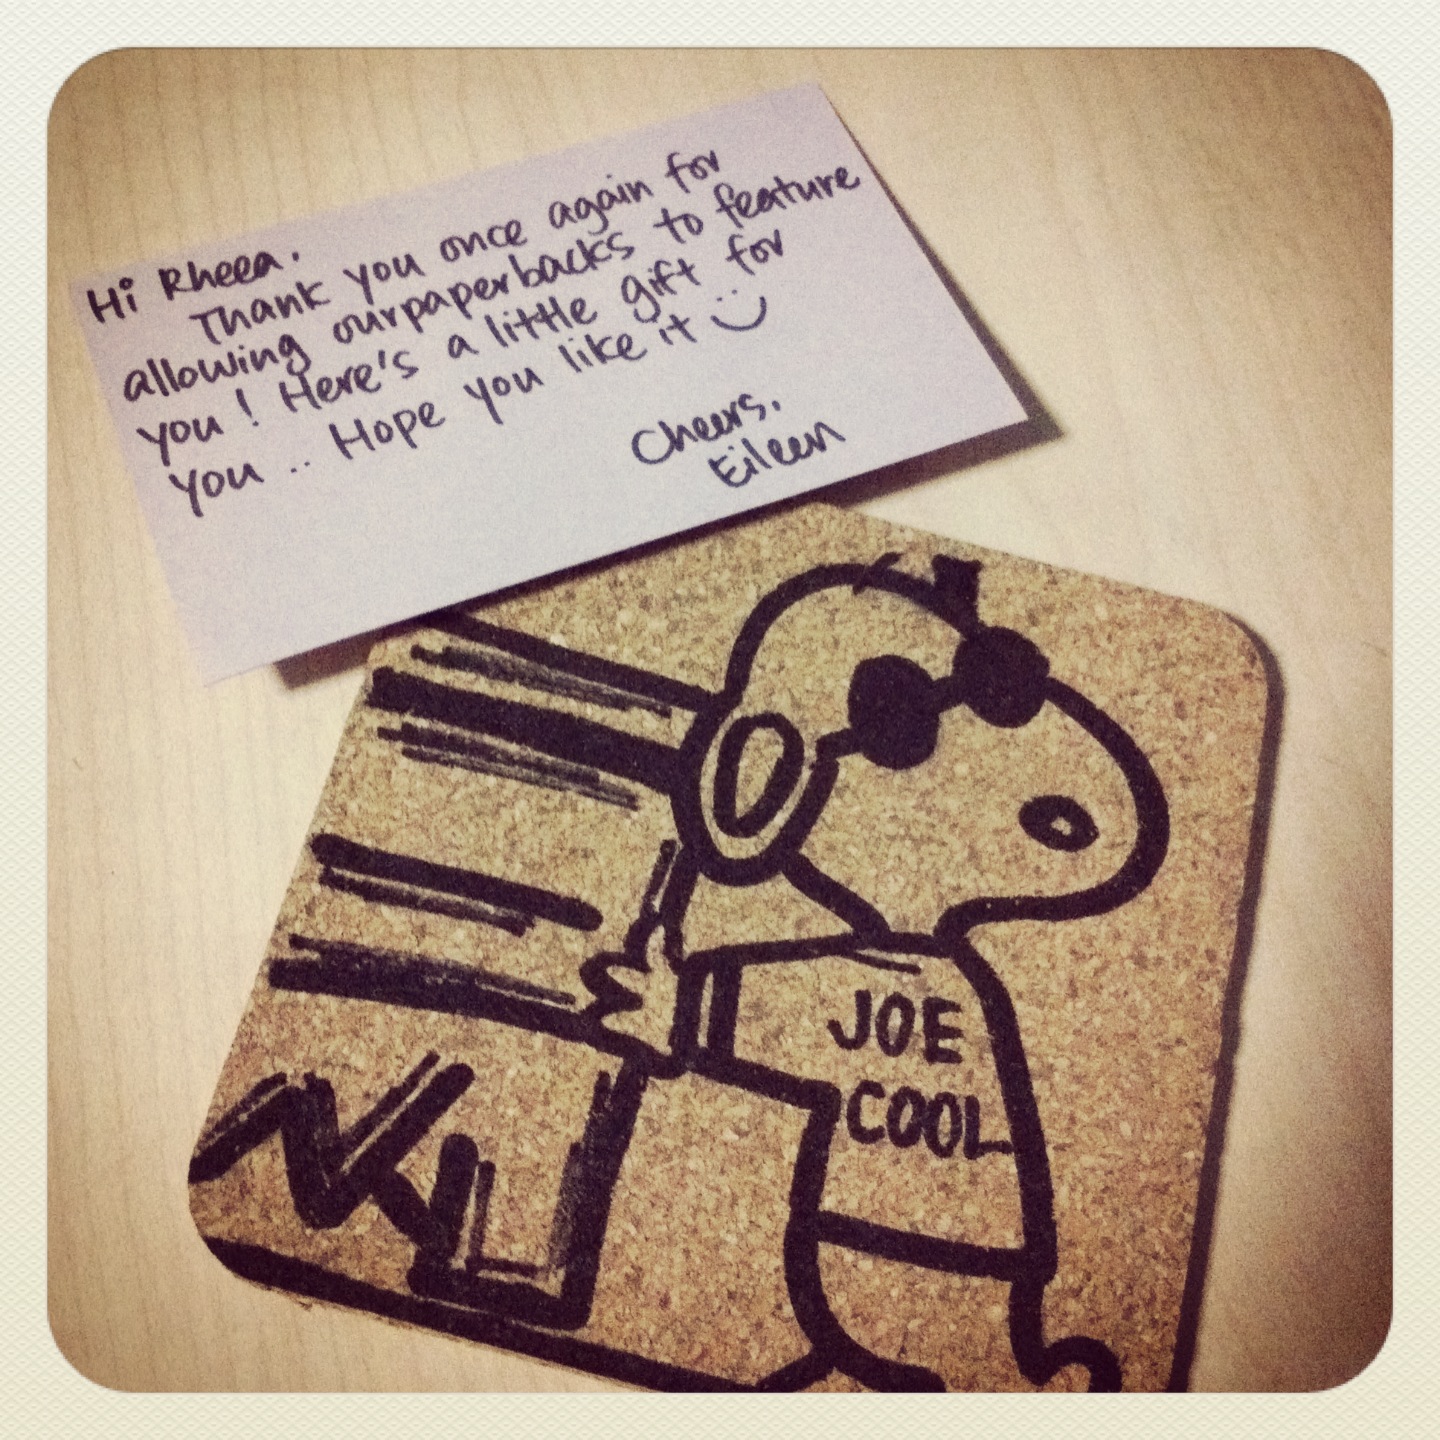 Hi Rheea.
Thank you once again for
allowing ourpaperbacks to feature
you! Here's a little gift for
you .. Hope you like it :)
Cheers,
Eileen
JOE
COOL